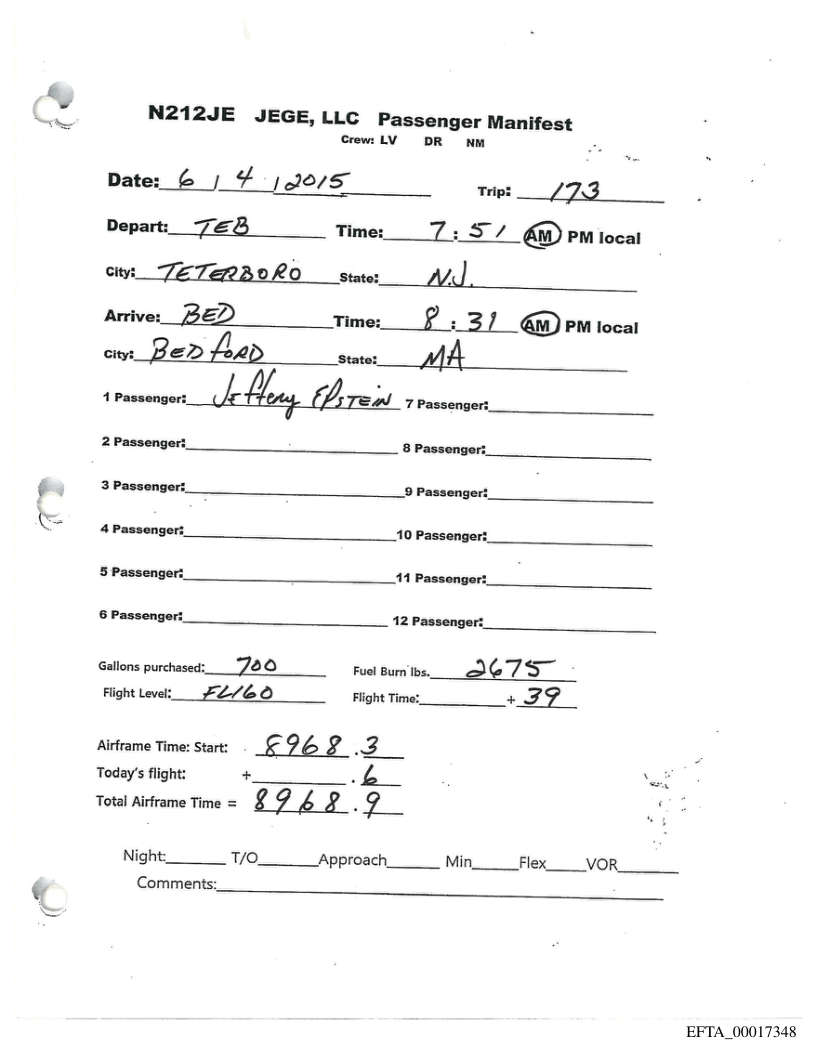 N212JE JEGE, LLC Passenger Manifest
Crew: LV DR NM
Date: 6 / 4 / 2015 Trip: 173
Depart: TEB Time: 7:51 AM PM local
City: TETERBORO State: N.J.
Arrive: BED Time: 8:31 AM PM local
City: BEDFORD State: MA
1 Passenger: Jeffery EPSTEIN 7 Passenger:
2 Passenger: 8 Passenger:
3 Passenger: 9 Passenger:
4 Passenger: 10 Passenger:
5 Passenger: 11 Passenger:
6 Passenger: 12 Passenger:
Gallons purchased: 700 Fuel Burn lbs. 2675
Flight Level: FL160 Flight Time: + 39
Airframe Time: Start: 8968.3
Today's flight: + .6
Total Airframe Time = 8968.9
Night: T/O Approach Min Flex VOR
Comments:
EFTA_00017348